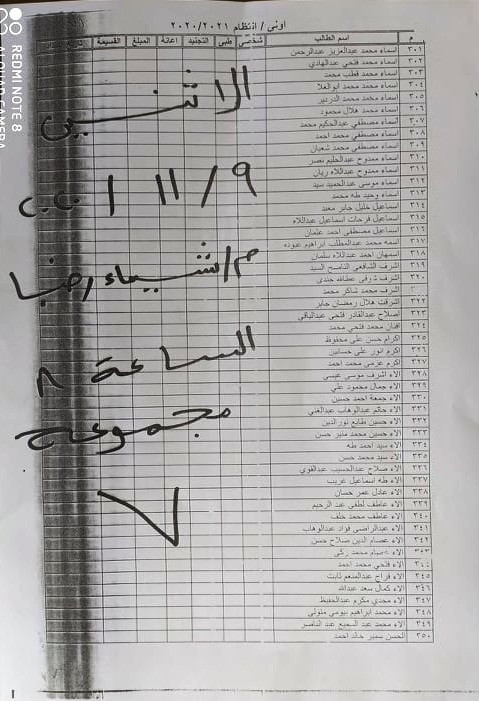 اولى / انتظام ٢٠٢٠/٢٠٢١
م اسم الطالب شخصى طبى التجنيد إعانة المبلغ القسيمة
٣٠١ اسماء محمد عبدالعزيز عبدالرحمن
٣٠٢ اسماء محمد فتحي عبدالهادي
٣٠٣ اسماء محمد قطب محمد
٣٠٤ اسماء محمد محمد ابوالعلا
٣٠٥ اسماء محمد محمد الدردير
٣٠٦ اسماء محمد هلال محمود
٣٠٧ اسماء مصطفي عبدالحكيم محمد
٣٠٨ اسماء مصطفي محمد احمد
٣٠٩ اسماء مصطفي محمد شعبان
٣١٠ اسماء ممدوح عبدالحليم نصر
٣١١ اسماء ممدوح عبداللاه ريان
٣١٢ اسماء موسي عبدالحميد سيد
٣١٣ اسماء وحيد طه محمد
٣١٤ اسماعيل خليل جابر معبد
٣١٥ اسماعيل فرحات اسماعيل عبداللاه
٣١٦ اسماعيل مصطفى احمد عثمان
٣١٧ اسمه محمد عبدالمطلب ابراهيم عبوده
٣١٨ اسمهان احمد عبداللاه سلمان
٣١٩ اشرف الشافعي الناصح السيد
٣٢٠ اشرف شرقى عطاالله جندى
٣٢١ اشرف محمد شاكر محمد
٣٢٢ اشرقت هلال رمضان جابر
٣٢٣ اصلاح عبدالقادر فتحي عبدالباقي
٣٢٤ افنان محمد فتحي محمد
٣٢٥ اكرام حسن علي محفوظ
٣٢٦ اكرم انور علي حسانين
٣٢٧ اكرم عزمي محمد احمد
٣٢٨ الاء اشرف موسي عيسي
٣٢٩ الاء جمال محمود علي
٣٣٠ الاء جمعة احمد حسين
٣٣١ الاء حاتم عبدالوهاب عبدالغني
٣٣٢ الاء حسين طايع نورالدين
٣٣٣ الاء حسين محمد منير حسن
٣٣٤ الاء سيد احمد طه
٣٣٥ الاء سيد محمد حسن
٣٣٦ الاء صلاح عبدالحسيب عبدالقوي
٣٣٧ الاء طه اسماعيل غريب
٣٣٨ الاء عادل عمر حسان
٣٣٩ الاء عاطف لطفى عبد الرحيم
٣٤٠ الاء عاطف محمد خلف
٣٤١ الاء عبدالراضى فؤاد عبدالوهاب
٣٤٢ الاء عصام الدين صلاح حسن
٣٤٣ الاء عصام محمد زكى
٣٤٤ الاء فتحي محمد احمد
٣٤٥ الاء فراج عبدالمنعم ثابت
٣٤٦ الاء كمال سعد عبدالله
٣٤٧ الاء مجدي مكرم عبدالحفيظ
٣٤٨ الاء محمد ابراهيم بيومي متولي
٣٤٩ الاء محمد عبد السميع عبد الناصر
٣٥٠ الحسن سمير خالد احمد
الاثنين
٩ / ١١ / ٢٠٢٠
م/ شيماء رضا
الساعة ٨
مجموعة
٧
REDMI NOTE 8